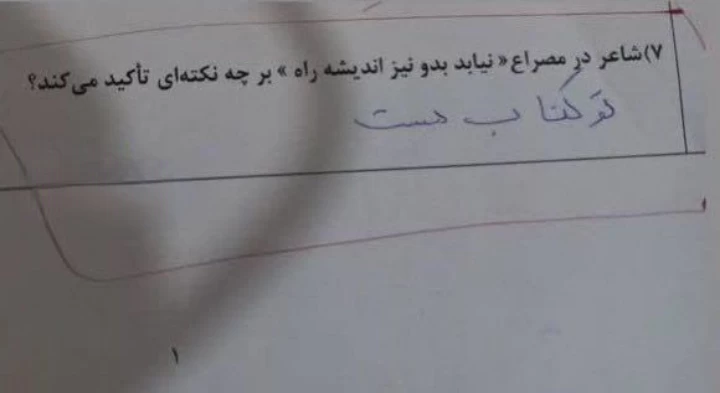 ۷)شاعر در مصراع« نیابد بدو نیز اندیشه راه » بر چه نکته‌ای تأکید می‌کند؟
تو کتاب هست
۱